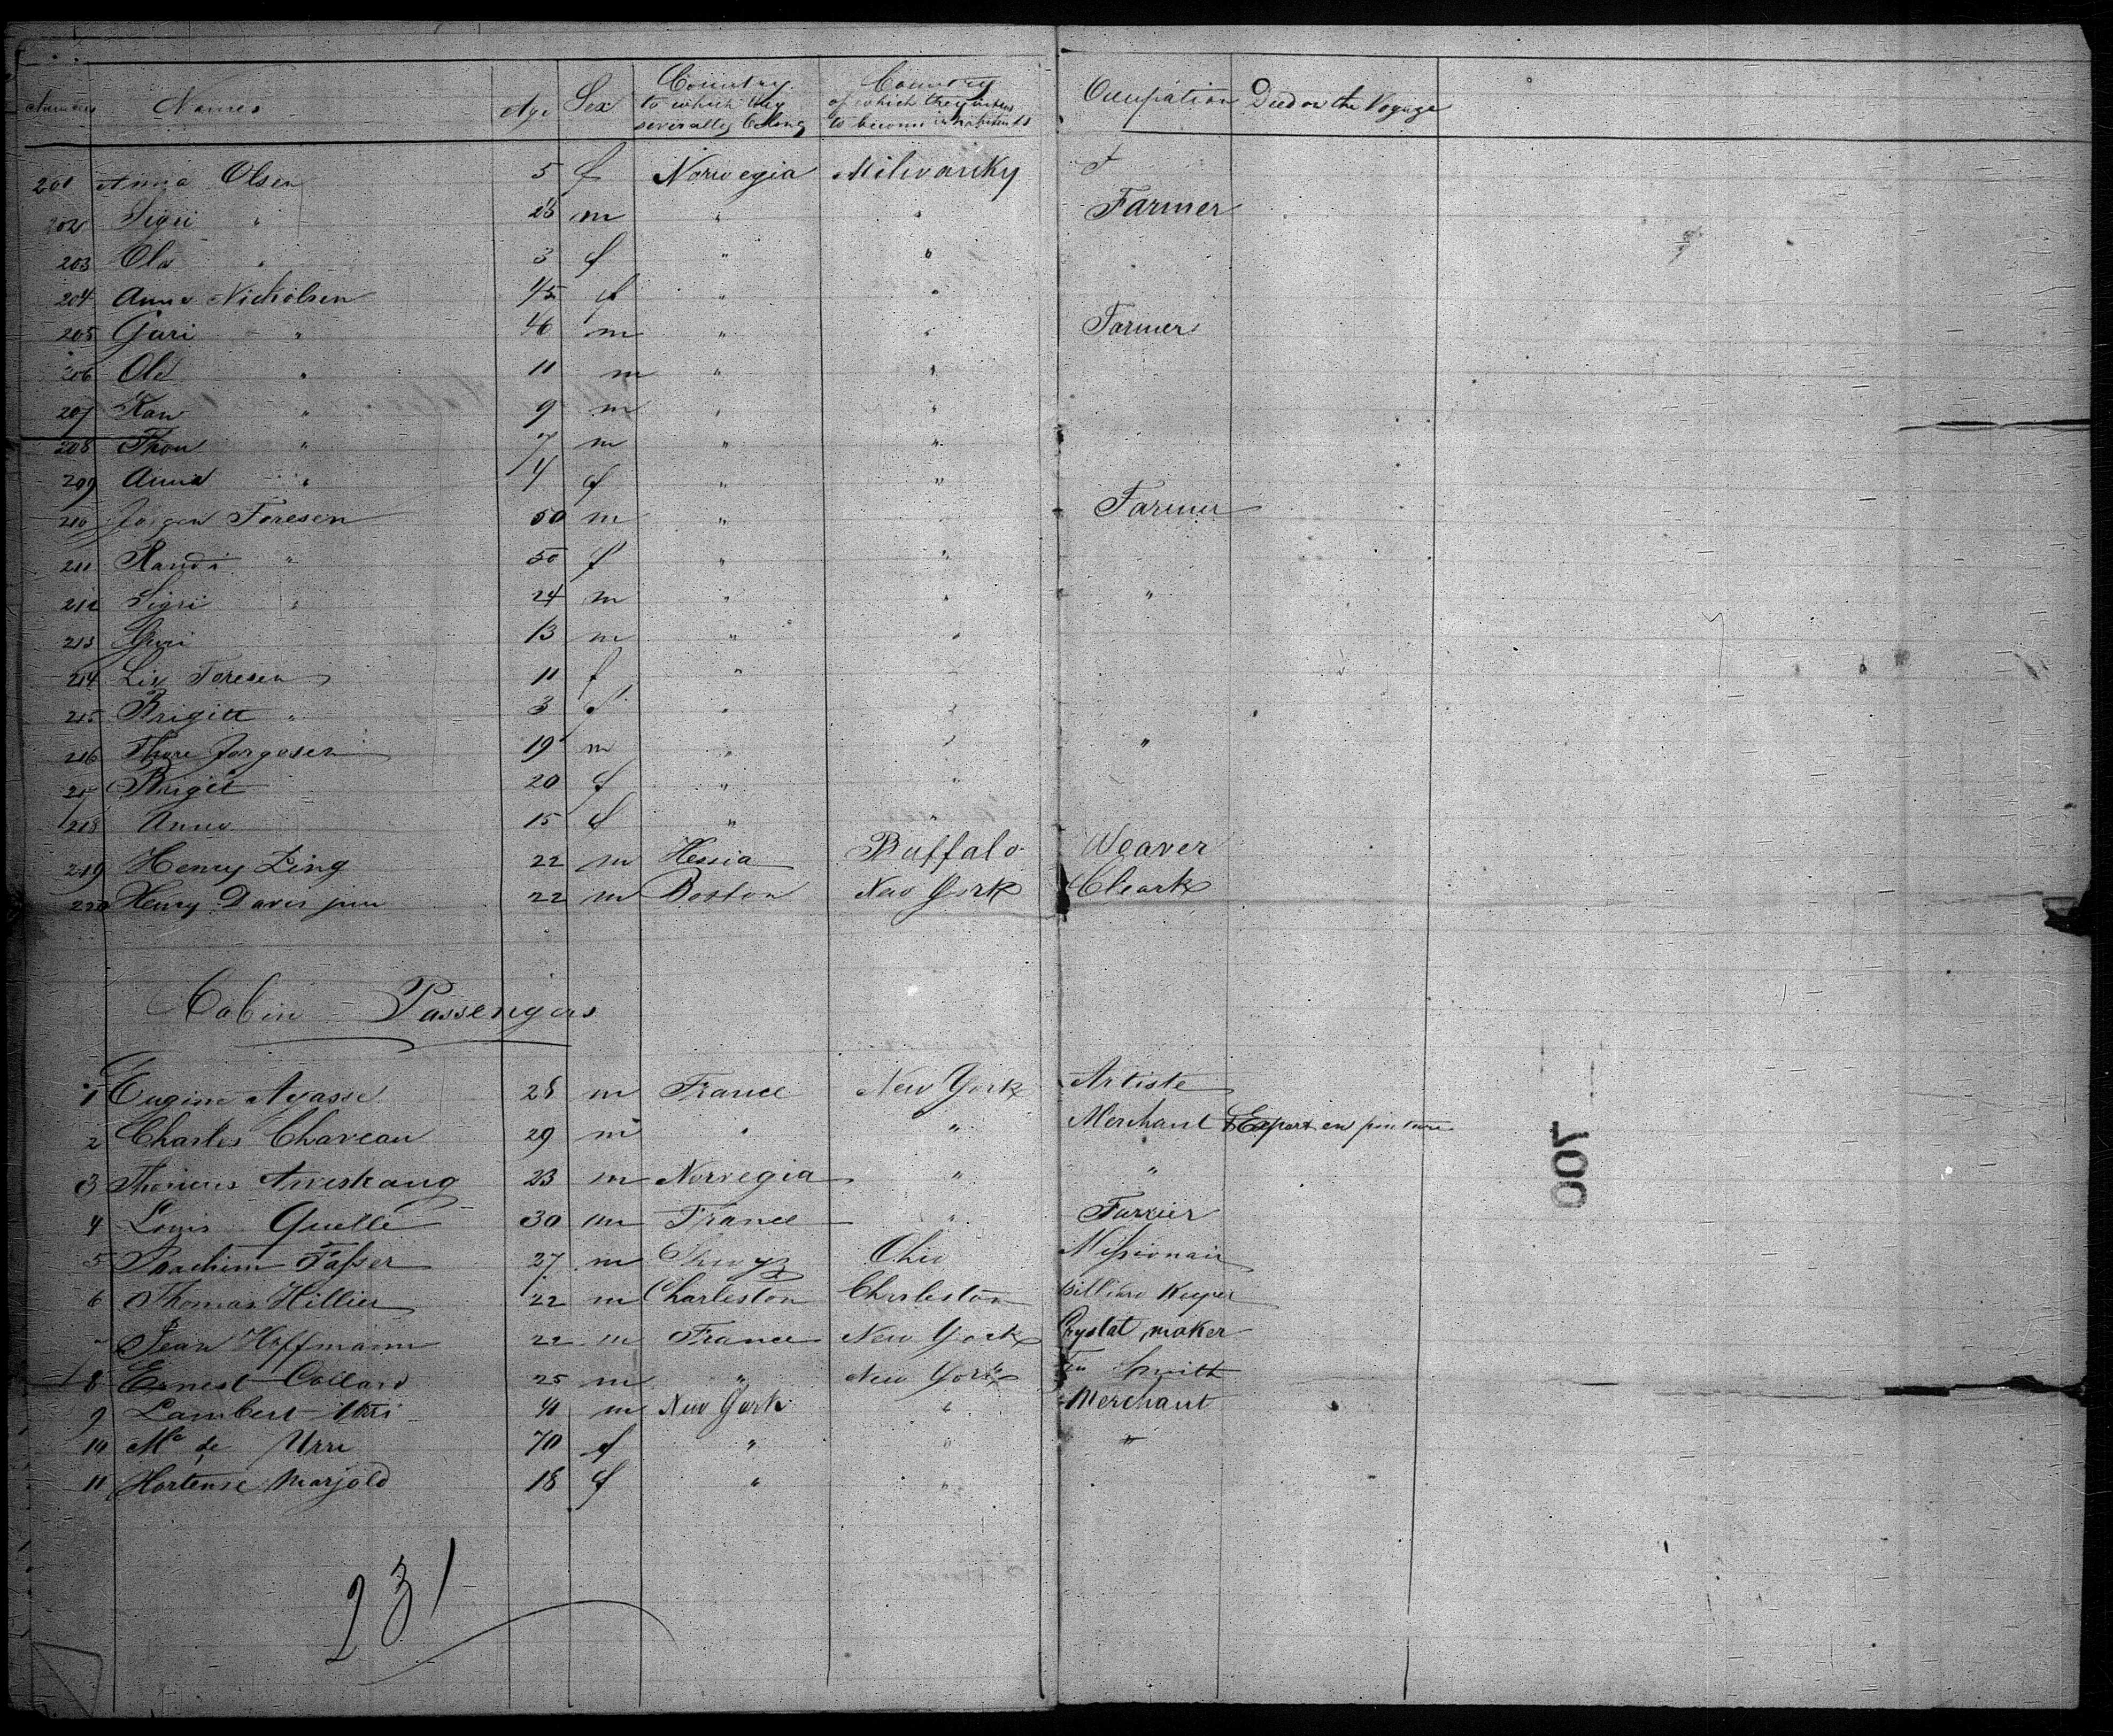 Numbers Names Age Sex Country to which they severally belong Country of which they intend to become inhabitants Occupation Died on the Voyage
201 Anna Olsen 5 f Norwegia Milwauky
202 Sigri " 26 m " " Farmer
203 Ola " 3 f " "
204 Anna Nicholsen 45 f " "
205 Guri " 46 m " " Farmer
206 Ole " 11 m " "
207 Kari " 9 m " "
208 Thou " 7 m " "
209 Anna " 4 f " "
210 Jorgen Toresen 50 m " Farmer
211 Randi " 50 f " "
212 Sigri " 24 m " " "
213 Guri 13 m " "
214 Liv Toresen 11 f " "
215 Brigitt " 3 f " "
216 Thore Jorgesen 19 m " " "
217 Birgit 20 f " "
218 Anna 15 f " "
219 Henry Ling 22 m Hessia Buffalo Weaver
220 Henry Davis jun 22 m Boston New York Cleark
Cabin - Passengers
1 Eugine Agasse 28 m France New York Artiste
2 Charles Chaveau 29 m " " Merchant Expert en peinture
3 23 m Norvegia " "
4 Louis Quelle 30 m France " Furrier
5 Joachim Fasser 27 m Shwyz Ohio Missionair
6 Thomas Hillier 22 m Charleston Charleston Billiard Keeper
7 Jean Hoffmann 22 m France New York Crystal maker
8 Ernest Collard 25 m " New York Tin Smith
9 Lambert Uri 41 m New York " Merchant
10 Me de Urri 70 f " " "
11 Hortense Marjold 18 f " "
231
700